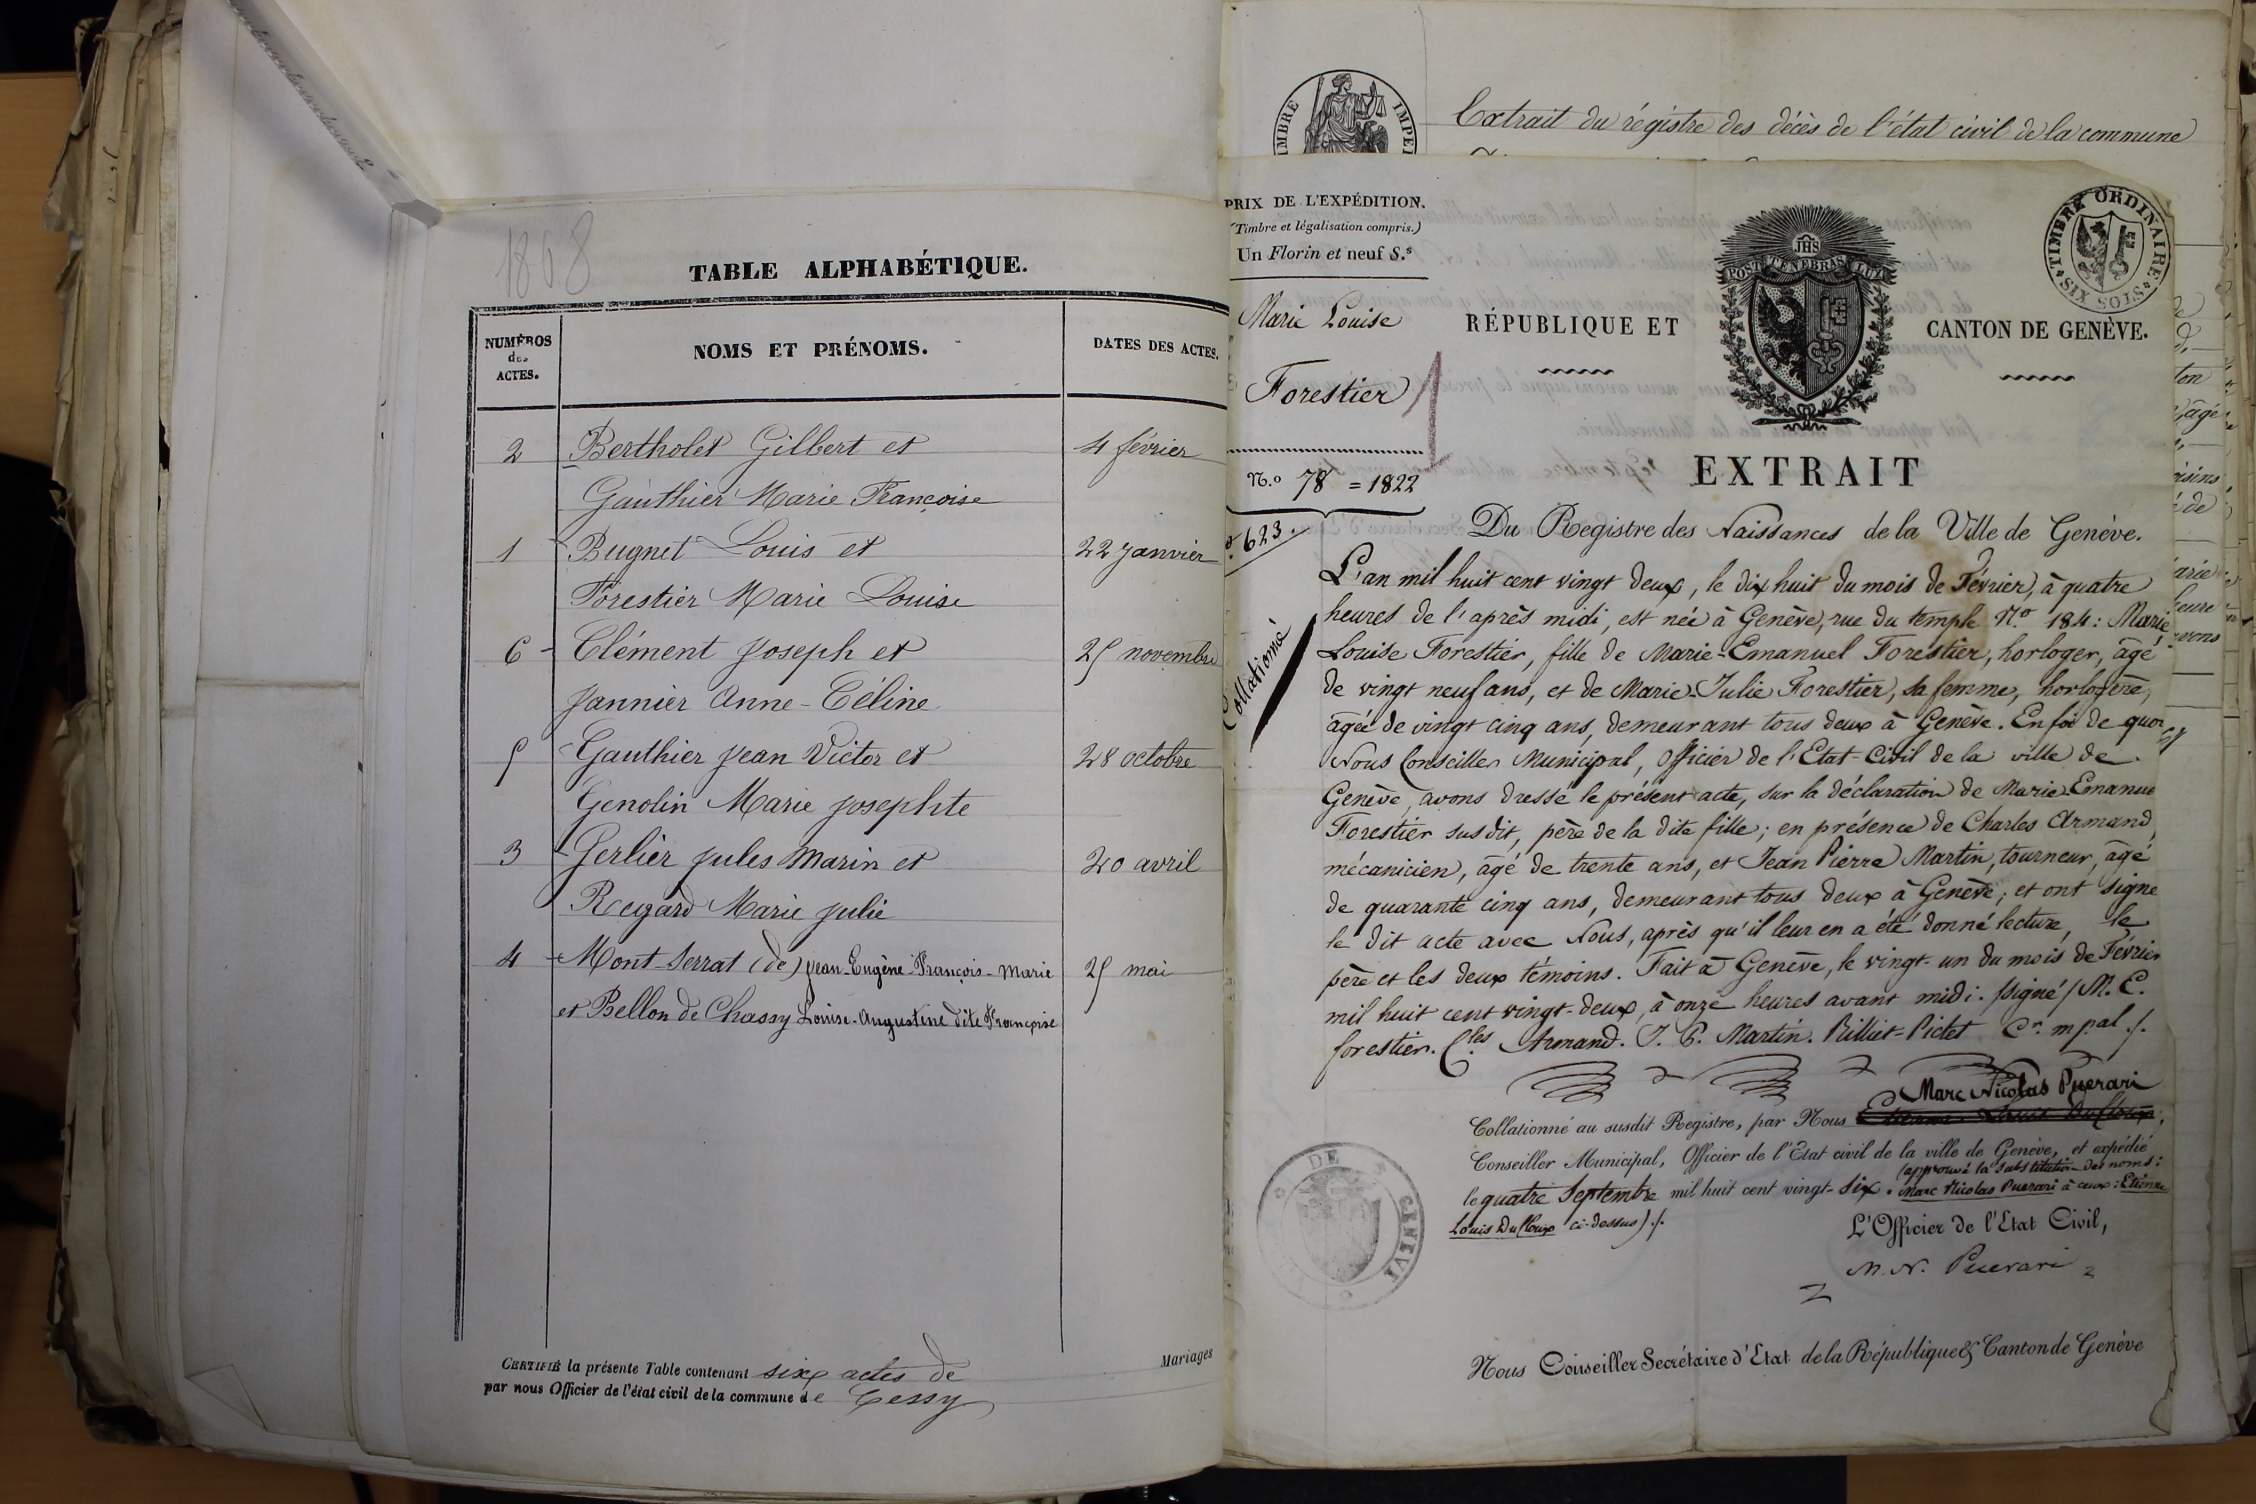 1868
TABLE ALPHABÉTIQUE.
NUMÉROS des ACTES.
NOMS ET PRÉNOMS.
DATES DES ACTES.
2 Bertholet Gilbert et 4 février
Gauthier Marie Françoise
1 Bugnet Louis et 22 janvier
Forestier Marie Louise
6 Clément Joseph et 25 novembre
Jannier Anne-Céline
5 Gauthier Jean Victor et 28 octobre
Genolin Marie Josephte
3 Gerlier Jules Marin et 20 avril
Regard Marie Julie
4 Mont-Serrat (de) Jean-Eugène-François-Marie 25 mai
et Bellon de Chassy Louise-Augustine dite Françoise
CERTIFIÉ la présente Table contenant six actes de Mariages
par nous Officier de l'état civil de la commune de Cessy
TIMBRE IMPE
Extrait du régistre des décès de l'état civil de la commune
PRIX DE L'EXPÉDITION.
(Timbre et légalisation compris.)
Un Florin et neuf S.s
Marie Louise
Forestier
N.o 78 = 1822
623.
Collationné
POST TENEBRAS LUX
JHS
TIMBRE ORDINAIRE
SIX SOLS
RÉPUBLIQUE ET CANTON DE GENÈVE.
EXTRAIT
Du Registre des Naissances de la Ville de Genève.
L'an mil huit cent vingt deux, le dix huit du mois de Février, à quatre
heures de l'après midi, est née à Genève, rue du temple N.o 184: Marie
Louise Forestier, fille de Marie-Emanuel Forestier, horloger, âgé
de vingt neuf ans, et de Marie-Julie Forestier, sa femme, horlogère,
âgée de vingt cinq ans, demeurant tous deux à Genève. En foi de quoi
Nous Conseiller Municipal, Officier de l'Etat-Civil de la ville de
Genève, avons dressé le présent acte, sur la déclaration de Marie-Emanuel
Forestier susdit, père de la dite fille; en présence de Charles Armand,
mécanicien, âgé de trente ans, et Jean Pierre Martin, tourneur, âgé
de quarante cinq ans, demeurant tous deux à Genève; et ont signé
le dit acte avec Nous, après qu'il leur en a été donné lecture, le
père et les deux témoins. Fait à Genève, le vingt-un du mois de Février
mil huit cent vingt-deux, à onze heures avant midi. /signé/ M. E.
forestier. Cles Armand. J. P. Martin. Rilliet-Pictet Cr. mpal ./.
Marc Nicolas Puerari
Collationné au susdit Registre, par Nous Etienne Louis Ducloux,
Conseiller Municipal, Officier de l'Etat civil de la ville de Genève, et expédié
(approuvé la substitution des noms:
le quatre Septembre mil huit cent vingt-six. Marc Nicolas Puerari à ceux: Etienne
Louis Ducloux ci-dessus) ./.
L'Officier de l'Etat Civil,
M. N. Puerari
DE GENEVE
Nous Conseiller Secrétaire d'Etat de la République & Canton de Genève